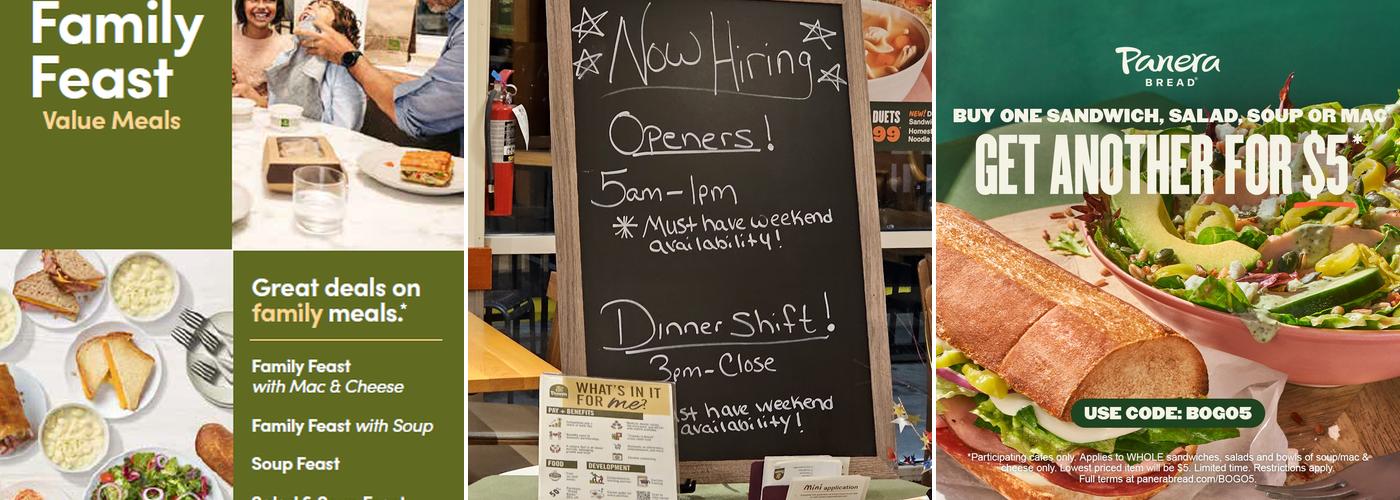 Family
Feast
Value Meals
Great deals on
family meals.*
Family Feast
with Mac & Cheese
Family Feast with Soup
Soup Feast
Now Hiring
Openers!
5am-1pm
* Must have weekend
availability!
Dinner Shift!
3pm-Close
have weekend
availability!
WHAT'S IN IT
FOR me?
PAY + BENEFITS
FOOD
DEVELOPMENT
mini application
DUETS
99
NEW!
Panera
BREAD®
BUY ONE SANDWICH, SALAD, SOUP OR MAC
GET ANOTHER FOR $5*
USE CODE: BOGO5
*Participating cafes only. Applies to WHOLE sandwiches, salads and bowls of soup/mac &
cheese only. Lowest priced item will be $5. Limited time. Restrictions apply.
Full terms at panerabread.com/BOGO5.